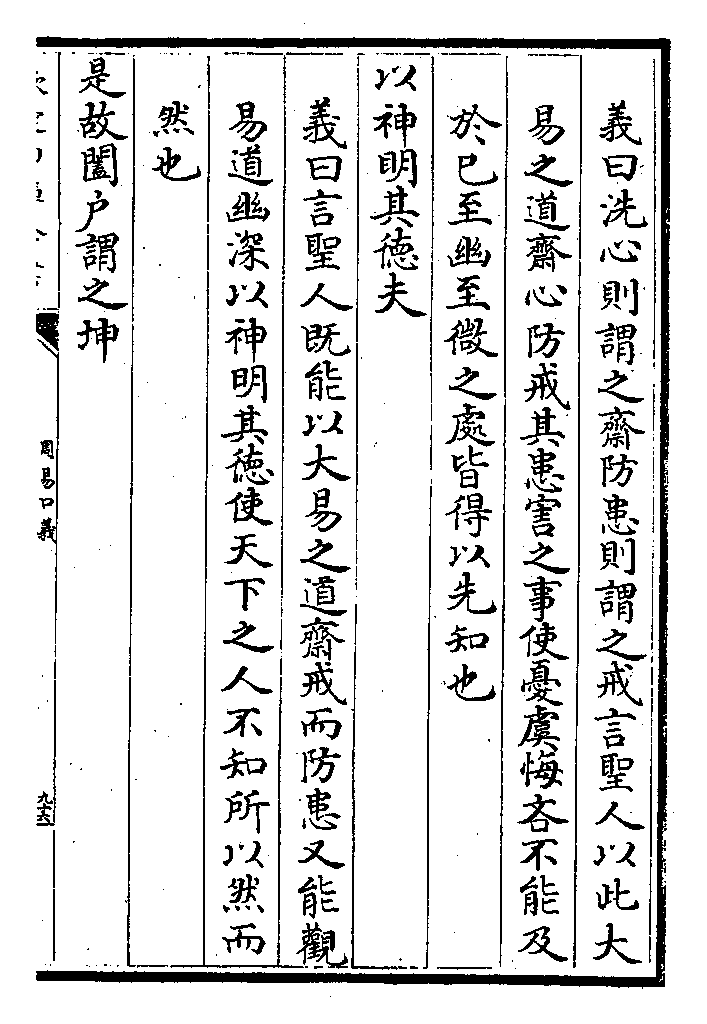 義曰洗心則謂之齋防患則謂之戒言聖人以此大
易之道齋心防戒其患害之事使憂虞悔吝不能及
於已至幽至微之處皆得以先知也
以神明其德夫
義曰言聖人既能以大易之道齋戒而防患又能觀
易道幽深以神明其德使天下之人不知所以然而
然也
是故闔户謂之坤
周易口義